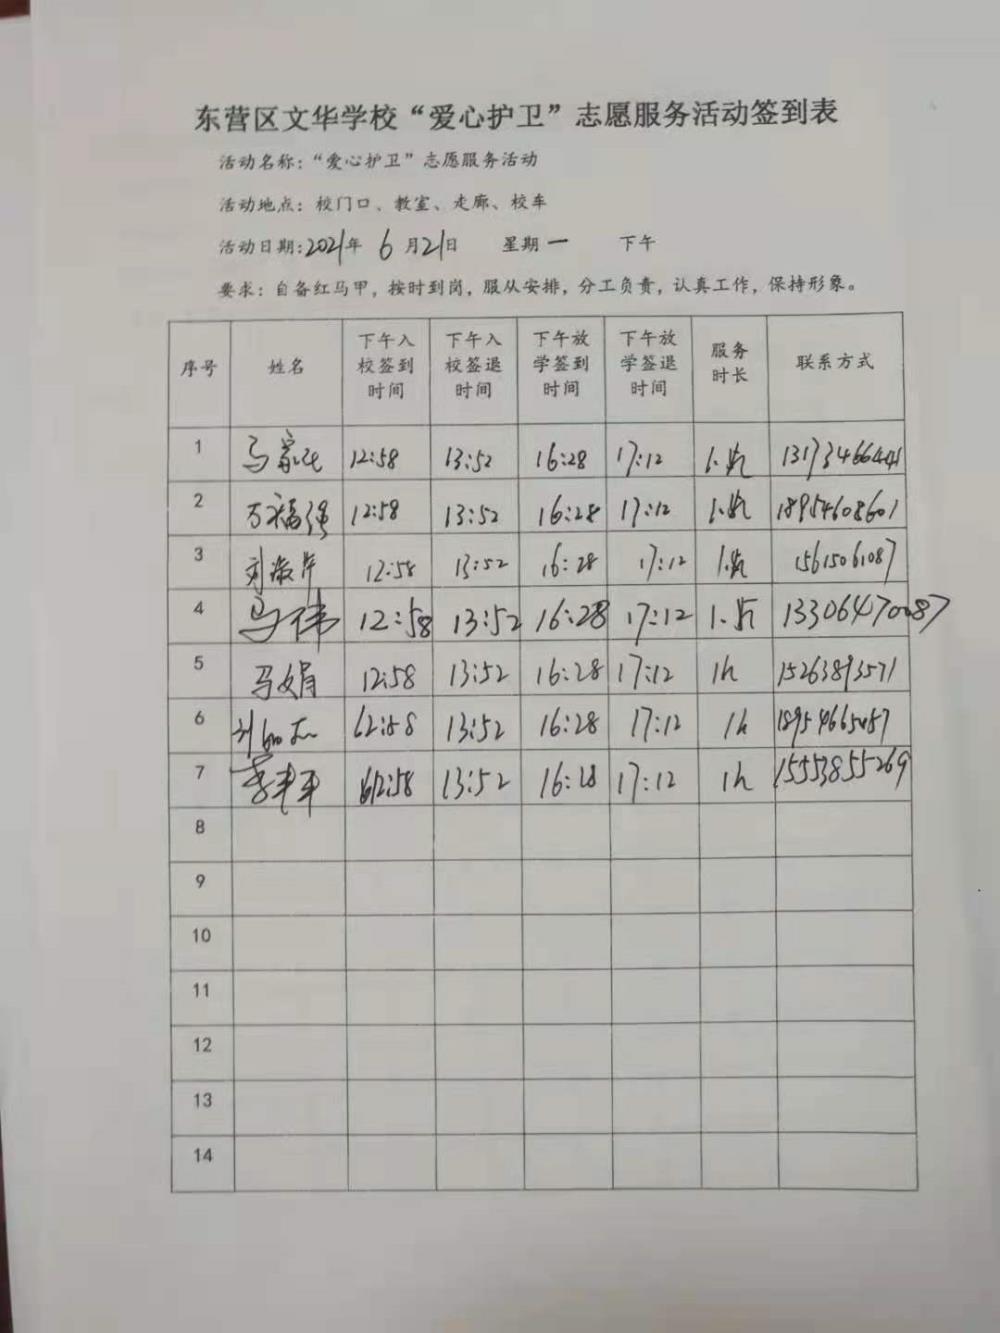 东营区文华学校“爱心护卫”志愿服务活动签到表
活动名称：“爱心护卫”志愿服务活动
活动地点：校门口、教室、走廊、校车
活动日期：2021年 6月21日 星期一 下午
要求：自备红马甲，按时到岗，服从安排，分工负责，认真工作，保持形象。
序号 姓名 下午入校签到时间 下午入校签退时间 下午放学签到时间 下午放学签退时间 服务时长 联系方式
1 马 12:58 13:52 16:28 17:12
2 万福强 12:58 13:52 16:28 17:12 18954608601
3 刘 12:58 13:52 16:28 17:12 15615061087
4 马伟 12:58 13:52 16:28 17:12 13306470087
5 马娟 12:58 13:52 16:28 17:12 1h 15263893571
6 12:58 13:52 16:28 17:12 1h
7 12:58 13:52 16:28 17:12 1h 15553855269
8
9
10
11
12
13
14